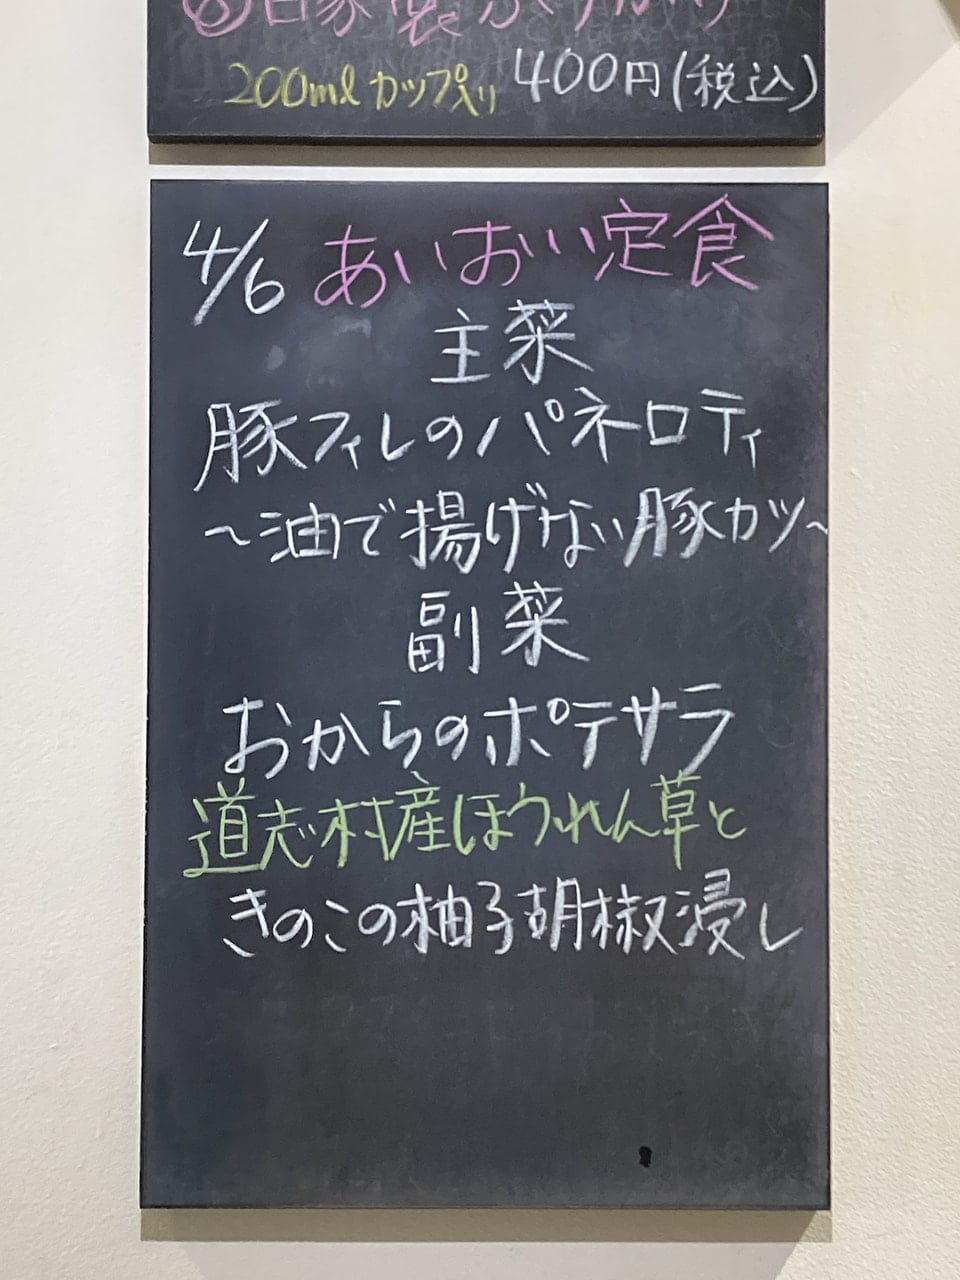 ②自家製ふりかけ
200mlカップ入り 400円(税込)
4/6 あいおい定食
主菜
豚フィレのパネロティ
〜油で揚げない豚カツ〜
副菜
おからのポテサラ
道志村産ほうれん草と
きのこの柚子胡椒浸し